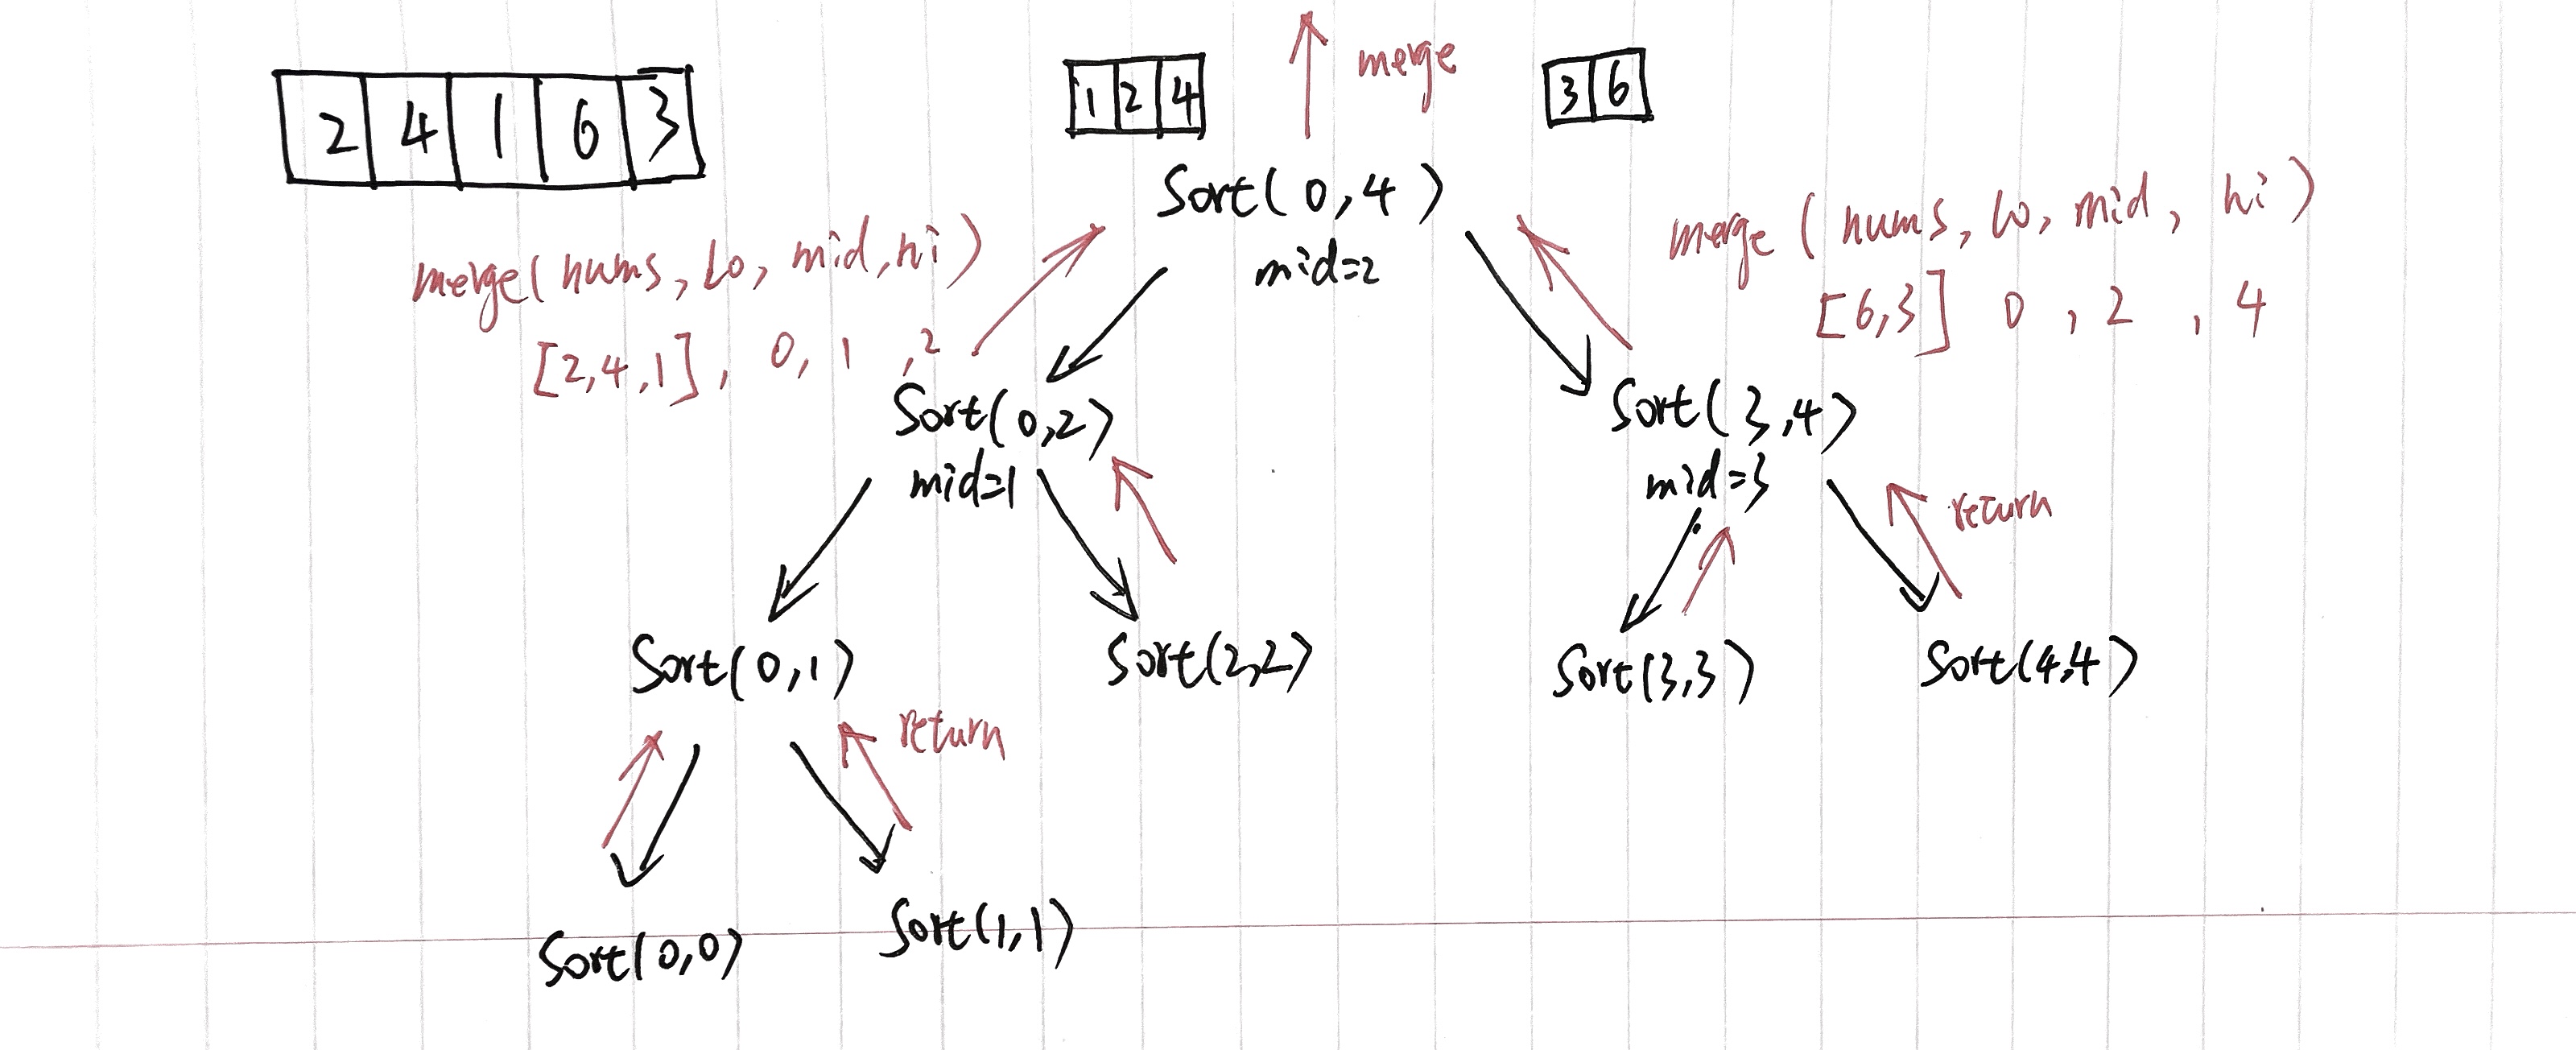 2 4 1 6 3
1 2 4
merge
3 6
Sort(0,4)
mid=2
merge(nums, lo, mid, hi)
[2,4,1], 0, 1, 2
merge(nums, lo, mid, hi)
[6,3] 0, 2, 4
Sort(0,2)
mid=1
Sort(3,4)
mid=3
return
Sort(0,1)
Sort(2,2)
Sort(3,3)
Sort(4,4)
return
Sort(0,0)
Sort(1,1)